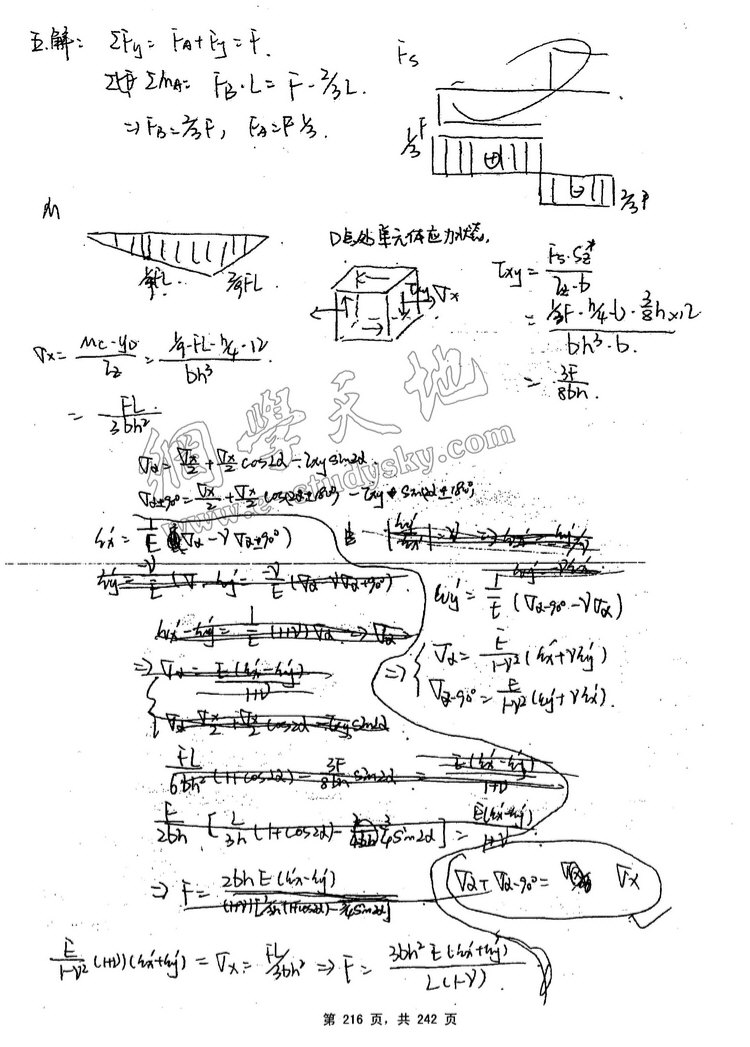 五.解: ΣFy = FA + Fy = F.
ΣMA = FB·L = F - 2/3 L.
⇒ FB = 2/3 F, FA = F 1/3.
Fs
1/3 F
⊕
⊖
2/3 F
M
1/9 FL. 2/9 FL.
D点处单元体应力状态,
τxy σx
τxy = Fs·Sz* / Iz·b
= 1/3 F·h/4·b·3/8 h×12 / bh³·b.
= 3F / 8bh.
σx = Mc·yD / Iz = 1/9·FL·h/4·12 / bh³
= FL / 3bh²
網學天地
www.e-studysky.com
σα = σx/2 + σx/2 cos2α - τxy sin2α.
σα±90° = σx/2 + σx/2 cos(2α±180°) - τxy sin(2α±180°)
εx' = 1/E (σα - ν σα±90°)
εy' = 1/E (σα-90° - νσα)
⇒ { σα = E/1-ν² (εx' + νεy')
σα-90° = E/1-ν² (εy' + νεx').
εx' - εy' = 1/E (1+ν) σα ⇒ σα
⇒ σα = E(εx' - εy') / 1+ν
σα = σx/2 + σx/2 cos2α - τxy sin2α
FL/6bh² (1+cos2α) - 3F/8bh sin2α = E(εx' - εy') / 1+ν
F/2bh [ L/3h (1+cos2α) - 3/4 sin2α ] = E(εx' - εy') / 1+ν
⇒ F = 2bhE(εx' - εy') / (1+ν)[L/3h (1+cos2α) - 3/4 sin2α]
σα + σα-90° = σx
E/1-ν² (1+ν)(εx' + εy') = σx = FL/3bh² ⇒ F = 3bh²E(εx' + εy') / L(1-ν)
第 216 页，共 242 页